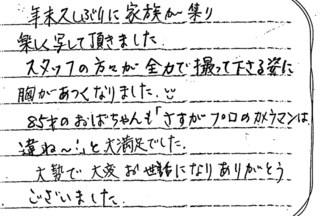 年末久しぶりに家族が集り
楽しく写して頂きました
スタッフの方々が全力で撮って下さる姿に
胸があつくなりました。
85才のおばあちゃんも「さすがプロのカメラマンは
違ね〜」と大満足でした。
大勢で大変お世話になりありがとう
ございました